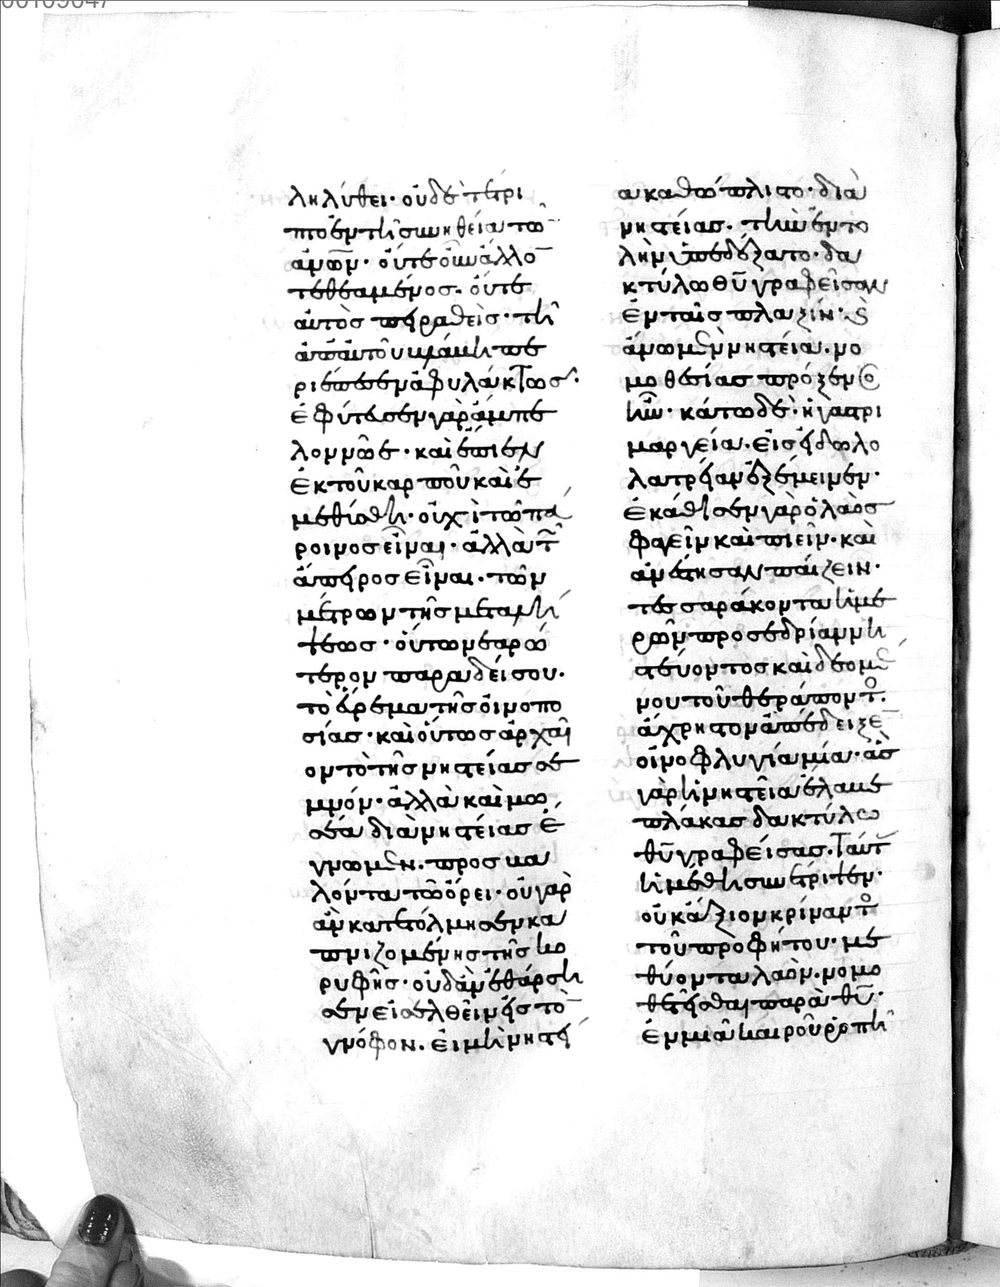 ληλύθει· οὐδὲ τέτρι
πτο ἐν τῆ συνηθεία τῶ̅
ἀν̅ω̅ν· οὔτε οὖν ἄλλο̅
τεθεαμένος· οὔτε
αὐτὸς πειραθεὶς· τῆ
ἀπ' αὐτοῦ βλάβη πε
ριέπεσεν ἀφυλάκτως·
ἐφύτευσεν γὰρ ἀμπε
λον νῶε· καὶ ἔπιεν
ἐκ τοῦ καρποῦ καὶ ἐ
μεθύσθη· οὐχὶ τῶ πά
ροινος εἶναι· ἀλλὰ τῶ
ἄπειρος εἶναι· τῶν
μέτρων τῆς μεταλή
ψεως· οὕτω νεαρώ
τερον παραδείσου·
τὸ εὕρεμα τῆς οἰνοπο
σίας· καὶ οὕτως ἀρχαῖ
ον τὸ τῆς νηστείας σε
μνόν· ἀλλὰ καὶ μωϋ
σέα διὰ νηστείας ἔ
γνωμεν· προσβα
λόντα τῶ ὄρει· οὐ γὰρ
ἂν κατετόλμησεν κα
πνιζομένης τῆς κο
ρυφῆς· οὐδ' ἂν ἐθάρση
σεν εἰσελθεῖν εἰς τὸ̅
γνόφον. εἰ μὴ νηστεί
α καθώπλιστο· διὰ
νηστείας· τὴν ἐντο
λὴν ὑπεδέξατο· δα
κτύλω θ̅υ̅ γραφεῖσαν
ἐν ταῖς πλαξίν· καὶ
ἄνω μὲν ἡ νηστεία· νο
μοθεσίας πρόξενος
ἦν· κάτω δὲ· ἡ γαστρι
μαργεία· εἰς εἰδωλο
λατρείαν ἐξέμεινεν·
ἐκάθισεν γὰρ ὁ λαὸς
φαγεῖν καὶ πιεῖν· καὶ
ἀνέστησαν παίζειν·
τεσσαράκοντα ἡμε
ρῶν προσεδρίαν νη
στεύοντος καὶ δεομέ
νου τοῦ θεράποντος·
ἄχρηστον ἀπέδειξε̅
οἰνοφλυγία μία· ἃς
γὰρ ἡ νηστεία ἔλαβε
πλάκας δακτύλω
θ̅υ̅ γραφείσας· ταύτ(ας)
ἡ μέθη συνέτριψεν·
οὐκ ἄξιον κρίναντος
τοῦ προφήτου· με
θύοντα λαὸν· νομο
θετεῖσθαι παρὰ θ̅υ̅·
ἐν μιᾶ καιροῦ ῥοπῆ